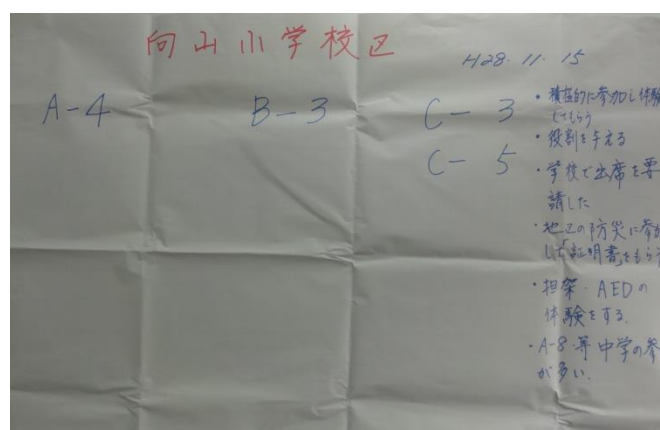 向山小学校区
H28.11.15
A-4 B-3 C-3
C-5
・積極的に参加し体験
してもらう
・役割を与える
・学校で出席を要
請した
・地区の防災に参加
して「証明書」をもらう
・担架・AEDの
体験をする.
・A-8.等中学の参
が多い.